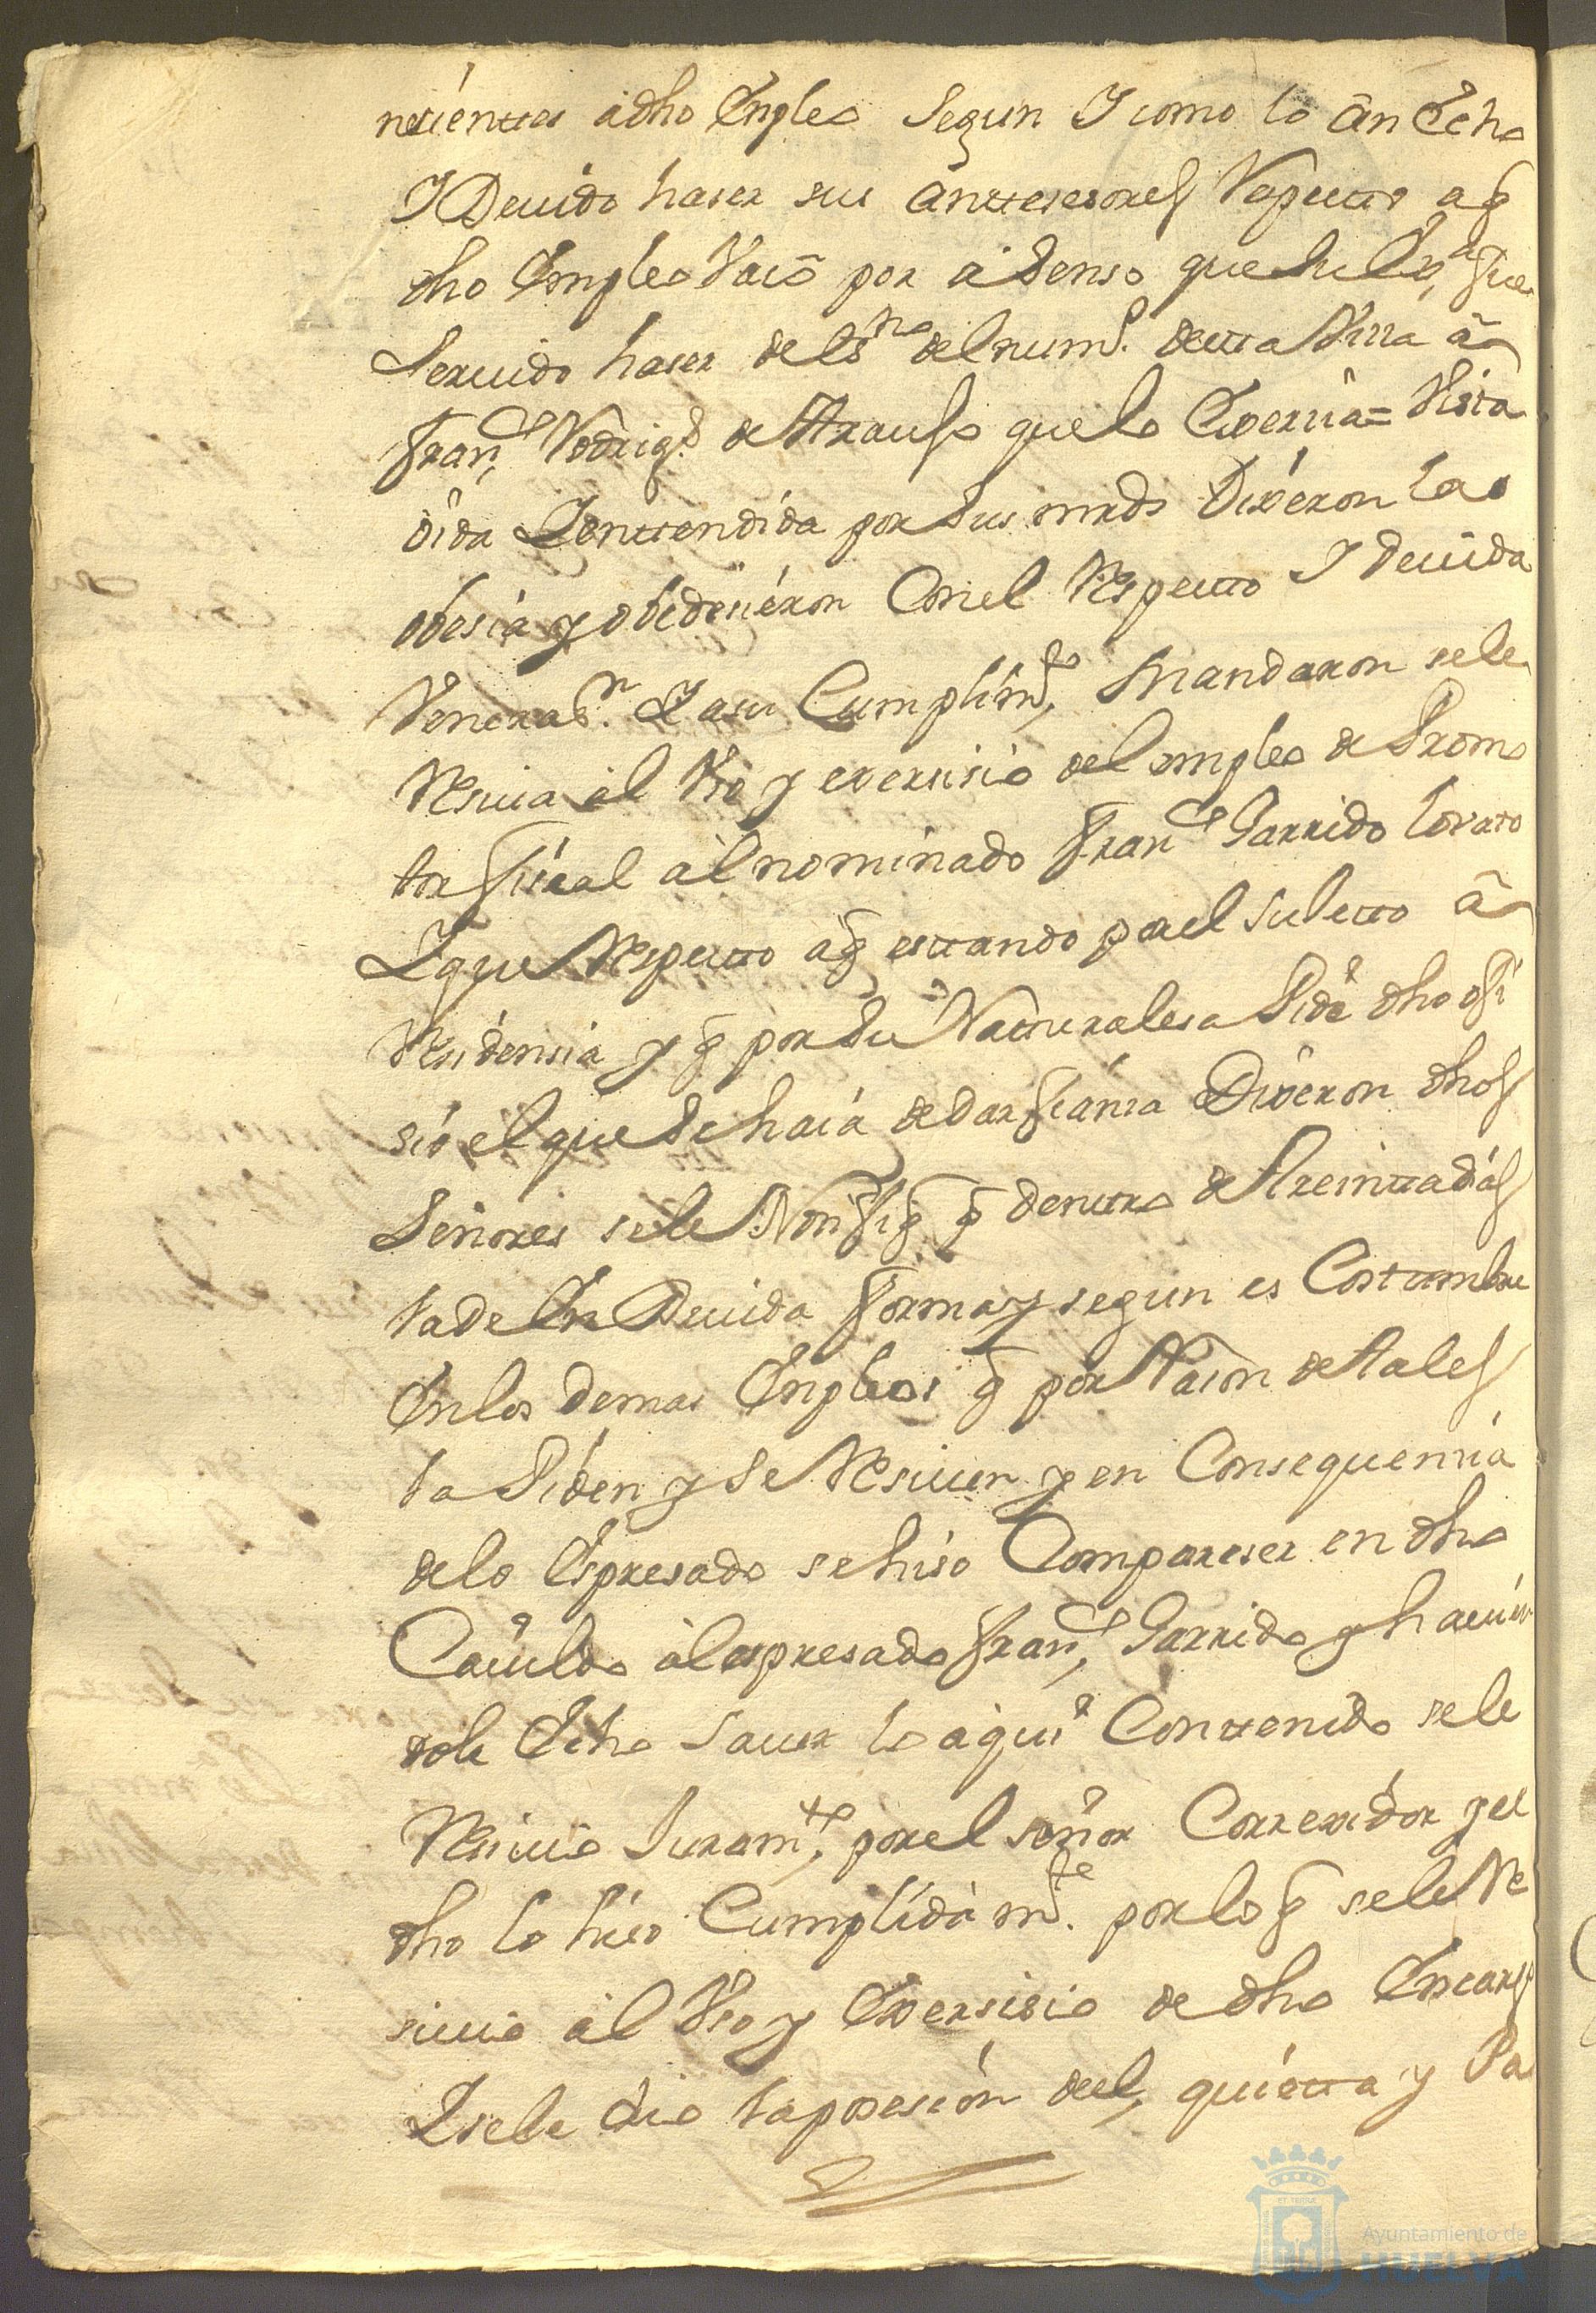 necienttes a dho Enpleo Segun Y como lo an Echo
Y Devido haser sus anttesesores Respecto a q
dho Empleo Vacó por asenso que su Exª fue
Seruido haser de Essno del numº. desta Villa a
Franco Rodrigs de Araujo que lo Exersia = Vista
oida Y enttendida por Sus mrds Dixeron la
obesia y obedesieron Con el Respecto Y deuida
Venerasn. Y a su Cumplimto, Mandaron se le
Resiua al Vso y exersisio del empleo de Promo
tor fiscal al nominado Franco Garrido lovato
Y que Respecto a q esttando por el Suletto a
Residensia y q por Su Naturalesa Pide dho ofi
sio el que Se haia de dar fianza Dixeron dhos
Señores se le Nottifiq q denttro de Treintta dias
la de En Devida forma y segun es Costumbre
En los demas Enpleos q por Rason de Tales
la Piden y Se Resiuen y en Consequencia
de lo Espresado se hiso Compareser en dho
Cauildo al espresado Franco Garrido y hauien
dole Echo Sauer lo aqui Conttenido se le
Resiuio Juramto, por el señor Correxidor y el
dho lo hiso Cumplidamte. por lo q se le Re
siuio al Vso y Exersisio de dho Encargo
Y se le dio la posesion del, quietta y Pa
Ayuntamiento de
HUELVA